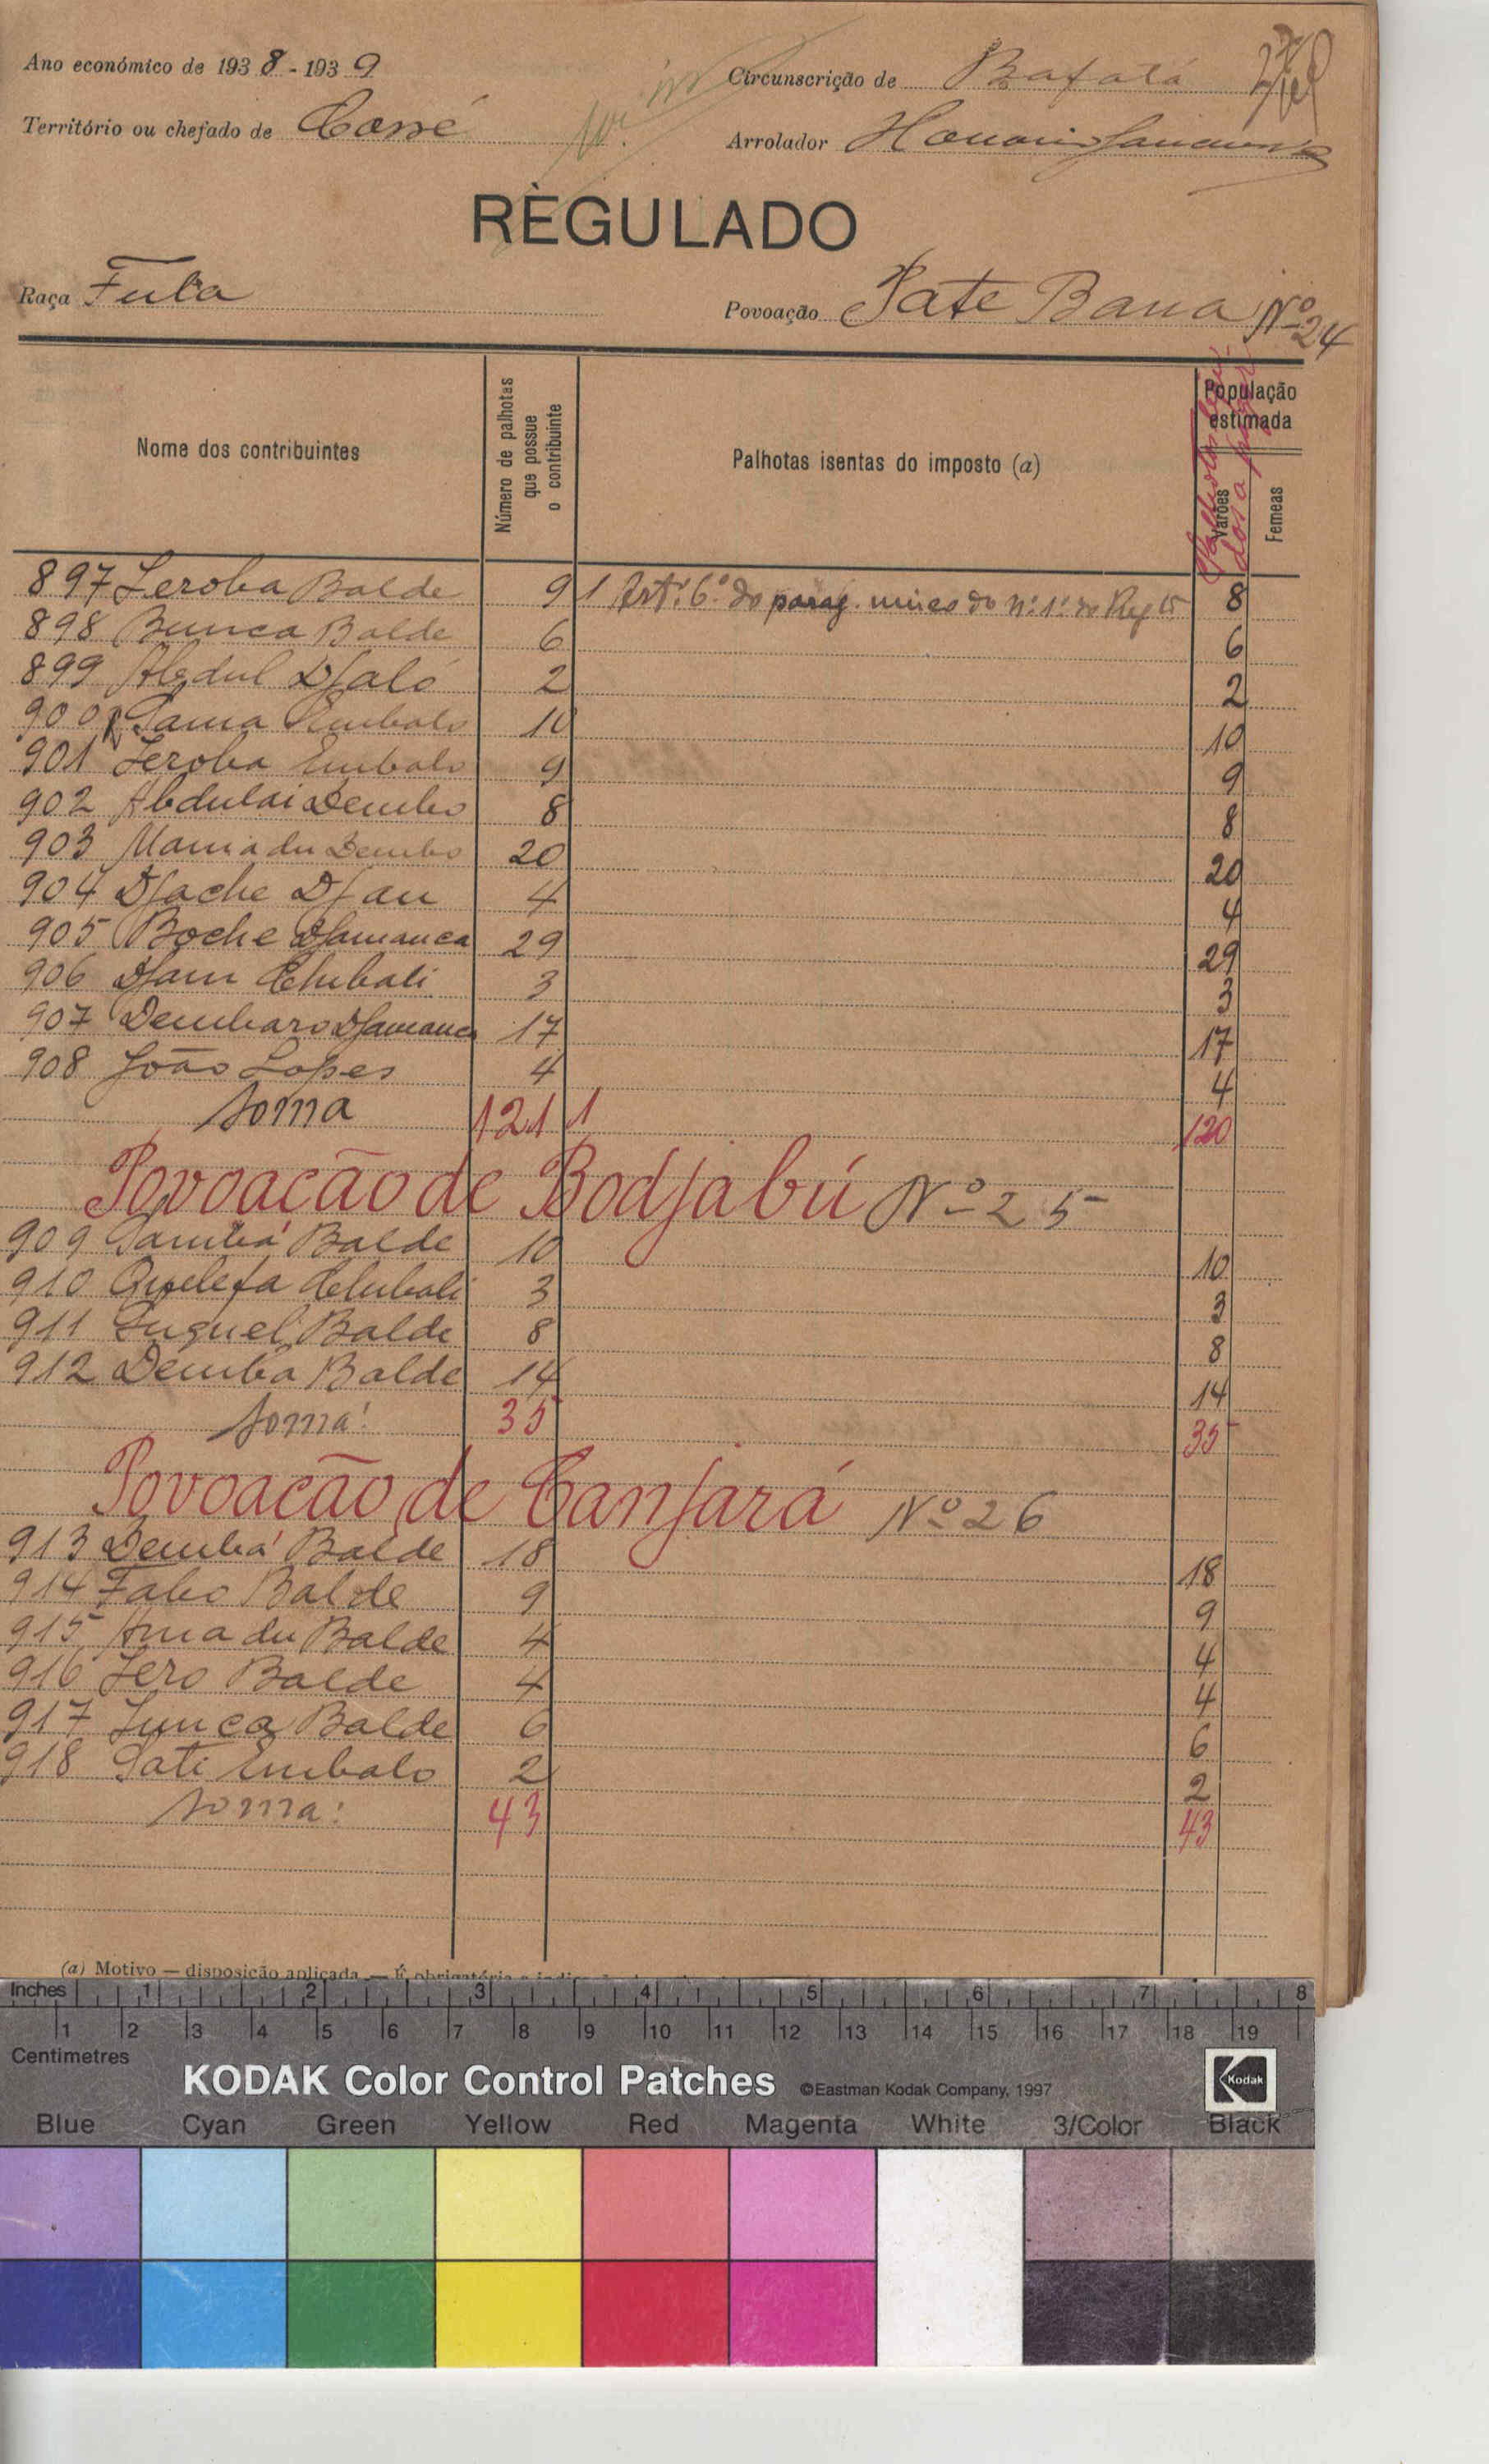 Ano económico de 1938-1939
Circunscrição de Bafatá
Território ou chefado de Cossé
Arrolador
REGULADO
Raça Fula
Povoação Sate Bana Nº 24
Nome dos contribuintes
Número de palhotas que possue o contribuinte
Palhotas isentas do imposto (a)
População estimada
Varões
Femeas
897 Leroba Balde 9 1 Artº 6º do parag. unico do nº 1º do Regto 8
898 Bunca Balde 6 6
899 Abdul Djaló 2 2
900 Sama Embalo 10 10
901 Leroba Embalo 9 9
902 Abdulai Dembo 8 8
903 Mamadu Dembo 20 20
904 Djache Djau 4 4
905 Boche Djamanca 29 29
906 Djam Chubali 3 3
907 Dembaro Djamanca 17 17
908 João Lopes 4 4
Soma 121 1 120
Povoacão de Bodjabú Nº 25
909 Sambá Balde 10 10
910 Quelefa Chubali 3 3
911 Suguel Balde 8 8
912 Demba Balde 14 14
Soma: 35 35
Povoacão de Canjará Nº 26
913 Dembá Balde 18 18
914 Fabo Balde 9 9
915 Amadu Balde 4 4
916 Jero Balde 4 4
917 Junca Balde 6 6
918 Sati Embalo 2 2
Soma: 43 43
(a) Motivo — disposição aplicada — É
Inches 1 2 3 4 5 6 7 8
1 2 3 4 5 6 7 8 9 10 11 12 13 14 15 16 17 18 19
Centimetres
KODAK Color Control Patches ©Eastman Kodak Company, 1997 Kodak
Blue Cyan Green Yellow Red Magenta White 3/Color Black